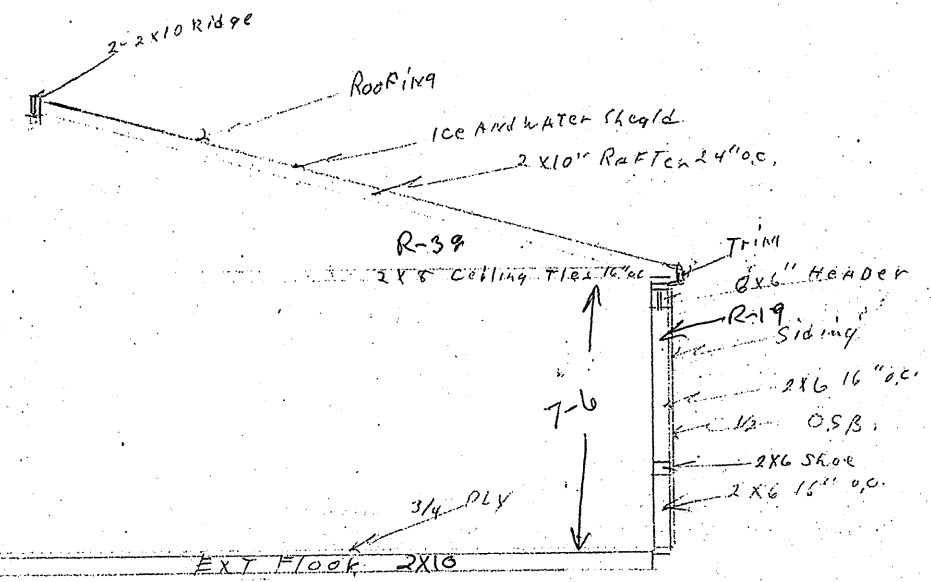 2-2x10 Ridge
Roofing
Ice And water Sheald
2 x10" RafTer 24"o.c.
R-39
2 x 8 Ceiling Ties 16"oc
Trim
6x6" Header
R-19
Siding
2X6 16"o.c.
7-6
1/2 O.S.B.
2X6 Shoe
2 X6 16" o.c.
3/4 PLY
EXT Floor 2X10